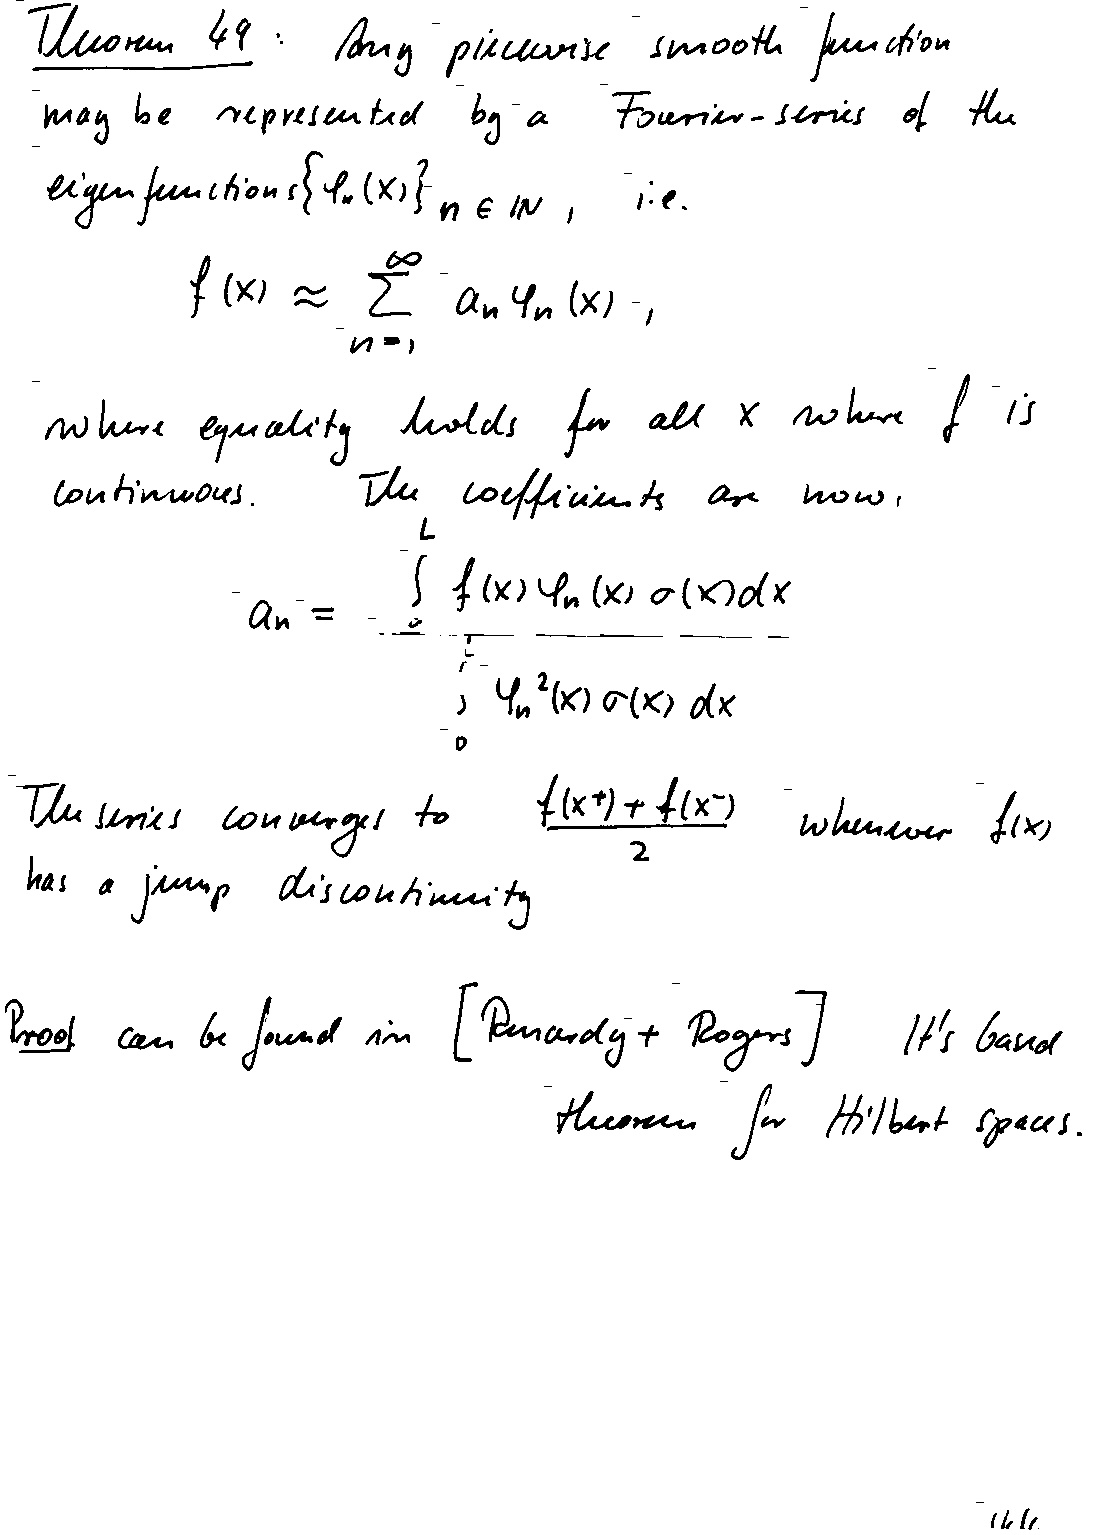 Theorem 49: Any piecewise smooth function
may be represented by a Fourier-series of the
eigenfunctions {φₙ(x)} n ∈ ℕ, i.e.
f(x) ≈ ∑_{n=1}^{∞} aₙ φₙ(x),
where equality holds for all x where f is
continuous. The coefficients are now,
aₙ = ∫₀^L f(x) φₙ(x) σ(x) dx / ∫₀^L φₙ²(x) σ(x) dx
The series converges to (f(x⁺) + f(x⁻))/2 whenever f(x)
has a jump discontinuity
Proof can be found in [Renardy + Rogers] It's based
theorem for Hilbert spaces.